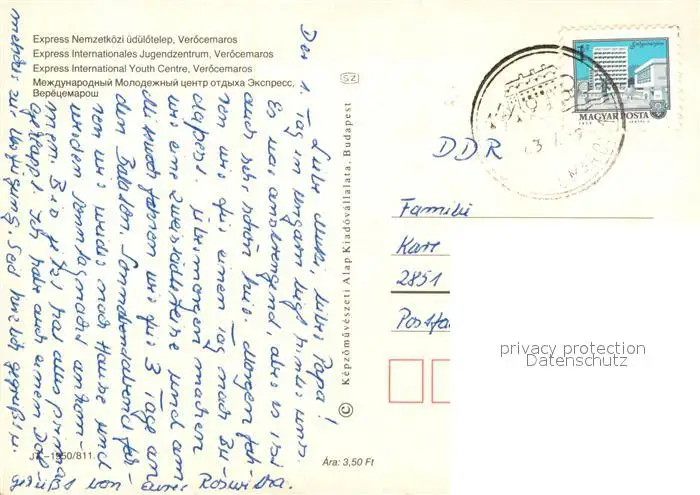 Express Nemzetközi üdülőtelep, Verőcemaros
Express Internationales Jugendzentrum, Verőcemaros
Express International Youth Centre, Verőcemaros
Международный Молодежный центр отдыха Экспресс,
Верёцемарош
Liebe Mutti, lieber Papa!
Der 1. Tag in Ungarn liegt hinter uns.
Es war anstrengend, aber es ist
auch sehr schön hier. Morgen fah-
ren wir für einen Tag nach Bu-
dapest. Übermorgen machen
wir eine Zweistädtereise und am
Mittwoch fahren wir für 3 Tage an
den Balaton. Sonnabendabend fah-
ren wir wieder nach Hause und
werden Sonntagnacht ankom-
men. Bis jetzt hat alles prima
geklappt. Ich habe auch einen Dol-
metscher zur Verfügung. Seid herzlich gegrüßt
gegrüßt von Eurer Roswitha.
SZ
© Képzőművészeti Alap Kiadóvállalata, Budapest
MAGYAR POSTA
DDR
Familie
Karl
2851
Postfa
privacy protection
Datenschutz
1950/811
Ára: 3,50 Ft